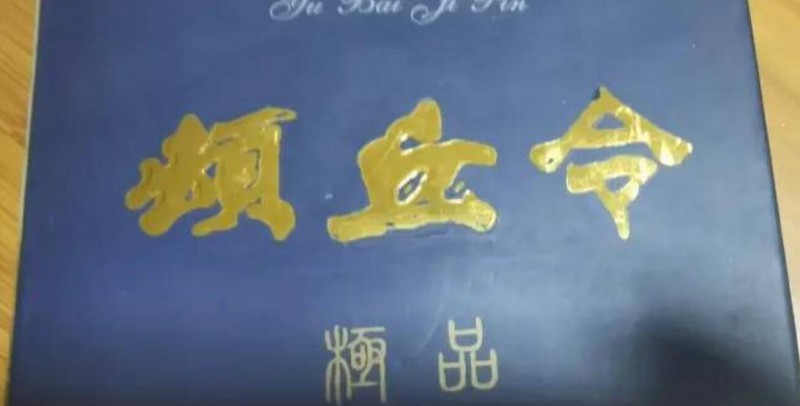 Yu Bai Ji Pin
頻丘令
極品